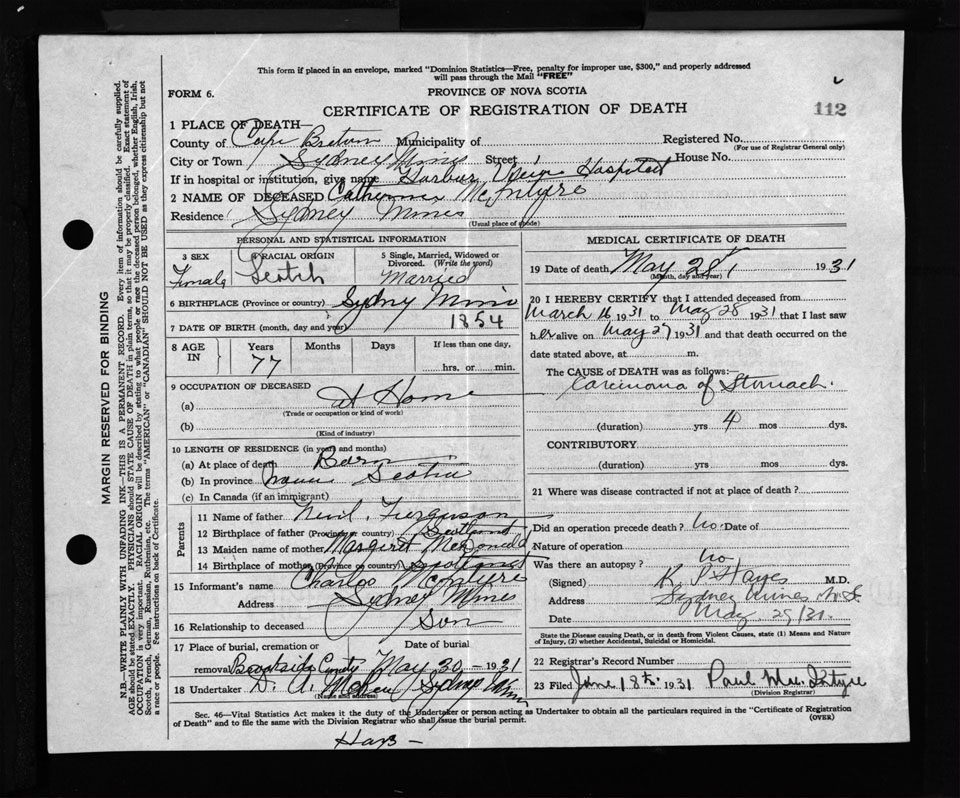 This form if placed in an envelope, marked "Dominion Statistics—Free, penalty for improper use, $300," and properly addressed
will pass through the Mail "FREE"
FORM 6.
PROVINCE OF NOVA SCOTIA
CERTIFICATE OF REGISTRATION OF DEATH
112
1 PLACE OF DEATH—
County of Cape Breton Municipality of Registered No.
(For use of Registrar General only)
City or Town Sydney Mines Street House No.
If in hospital or institution, give name Harbor View Hospital
2 NAME OF DECEASED Catherine McIntyre
Residence Sydney Mines
(Usual place of abode)
PERSONAL AND STATISTICAL INFORMATION
3 SEX 4 RACIAL ORIGIN 5 Single, Married, Widowed or
Divorced. (Write the word)
Female Scotch Married
6 BIRTHPLACE (Province or country) Sydney Mines
7 DATE OF BIRTH (month, day and year) 1854
8 AGE IN Years Months Days If less than one day,
77 hrs. or min.
9 OCCUPATION OF DECEASED
(a) At Home
(Trade or occupation or kind of work)
(b)
(Kind of industry)
10 LENGTH OF RESIDENCE (in years and months)
(a) At place of death Born
(b) In province Nova Scotia
(c) In Canada (if an immigrant)
Parents
11 Name of father Neil Ferguson
12 Birthplace of father (Province or country) Scotland
13 Maiden name of mother Margaret McDonald
14 Birthplace of mother (Province or country)
15 Informant's name Charles McIntyre
Address Sydney Mines
16 Relationship to deceased Son
17 Place of burial, cremation or Date of burial
removal Brookside May 30 - 1931
18 Undertaker D. A. Sydney Mines
(Name and address)
MEDICAL CERTIFICATE OF DEATH
19 Date of death May 28, 1931
(Month, day and year)
20 I HEREBY CERTIFY that I attended deceased from
March 16 1931 to May 28 1931 that I last saw
her alive on May 27 1931 and that death occurred on the
date stated above, at m.
The CAUSE of DEATH was as follows:
Carcinoma of Stomach.
(duration) yrs 4 mos dys.
CONTRIBUTORY
(duration) yrs mos dys.
21 Where was disease contracted if not at place of death?
Did an operation precede death? No. Date of
Nature of operation
Was there an autopsy? No
(Signed) R. P. Hayes M.D.
Address Sydney Mines N.S.
Date May 29/31.
State the Disease causing Death, or in death from Violent Causes, state (1) Means and Nature
of Injury, (2) whether Accidental, Suicidal or Homicidal.
22 Registrar's Record Number
23 Filed June 18th 1931 Paul McIntyre
(Division Registrar)
Sec. 46—Vital Statistics Act makes it the duty of the Undertaker or person acting as Undertaker to obtain all the particulars required in the "Certificate of Registration
of Death" and to file the same with the Division Registrar who shall issue the burial permit.
(OVER)
MARGIN RESERVED FOR BINDING
N.B.—WRITE PLAINLY WITH UNFADING INK—THIS IS A PERMANENT RECORD. Every item of information should be carefully supplied.
AGE should be stated EXACTLY. PHYSICIANS should STATE CAUSE OF DEATH in plain terms, so that it may be properly classified. Exact statement of
OCCUPATION is very important. RACIAL ORIGIN will be described by stating to what people or race the deceased person belonged, whether English, Irish,
Scotch, French, German, Russian, Ruthenian, etc. The terms "AMERICAN" or "CANADIAN" SHOULD NOT BE USED as they express citizenship but not
a race or people. See instructions on back of Certificate.